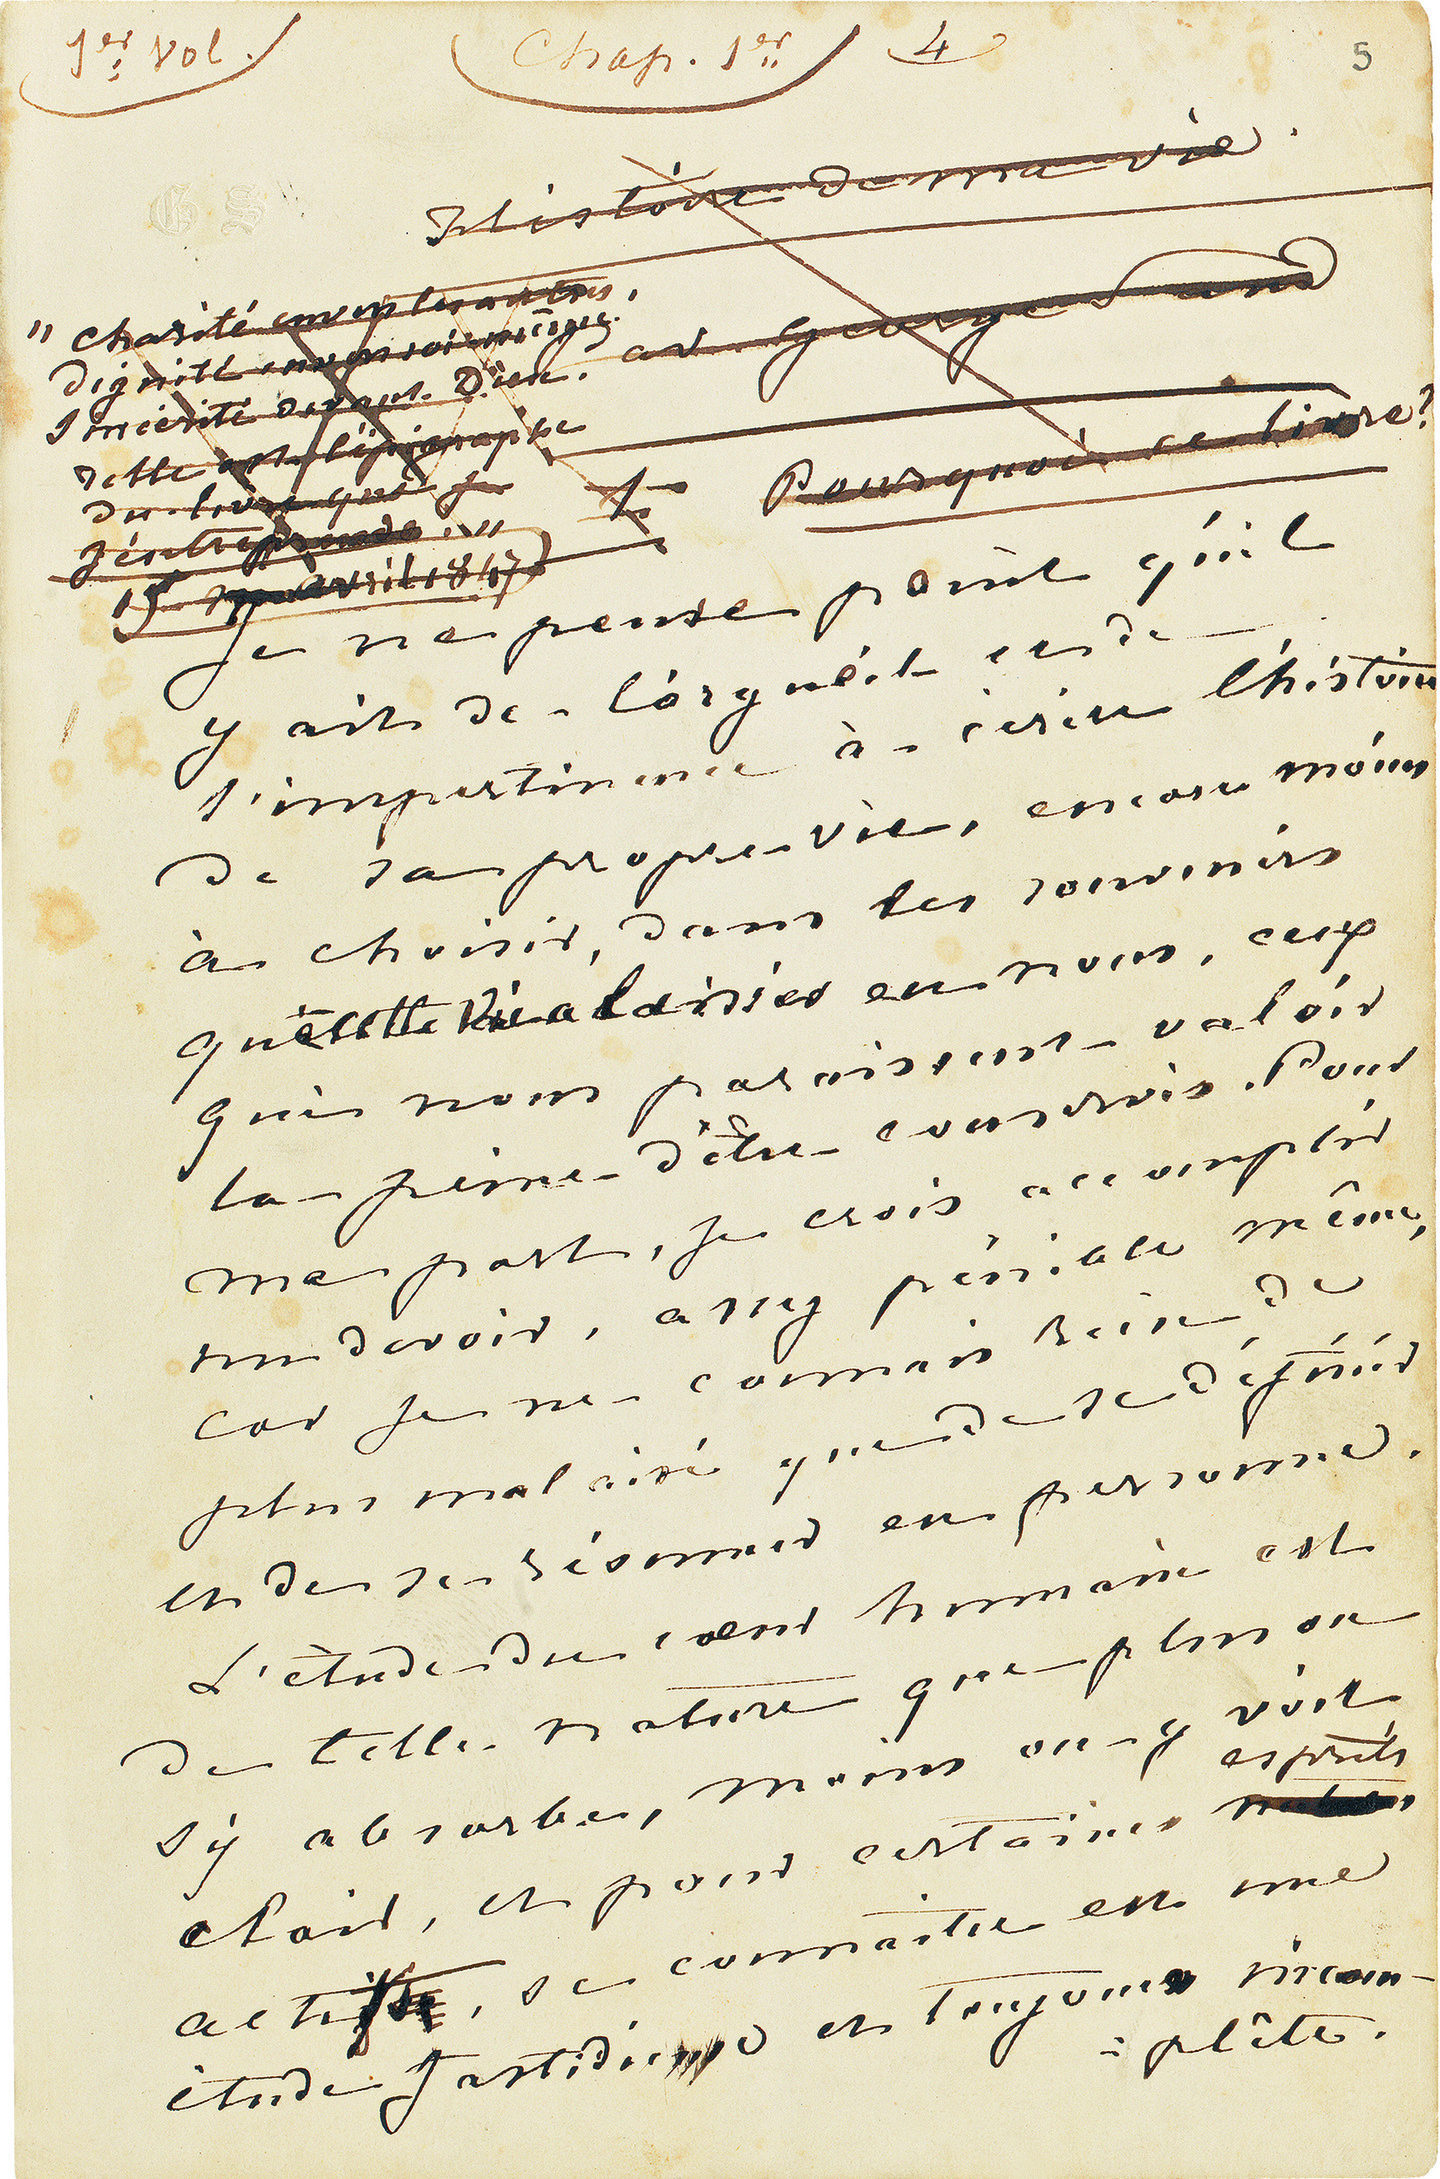 1er Vol.
Chap. 1er
4
5
G S
Histoire de ma vie.
par George Sand
" Charité envers les autres,
Dignité envers soi-même,
Sincérité devant Dieu.
Telle est l'épigraphe
du livre que je
j'entreprends. "
15 avril 1847
1
Pourquoi ce livre?
Je ne pense point qu'il
y ait de l'orgueil et de
l'impertinence à écrire l'histoire
de sa propre vie, encore moins
à choisir, dans les souvenirs
que cette vie a laissés en nous, ceux
qui nous paraissent valoir
la peine d'être conservés. Pour
ma part, je crois accomplir
un devoir, assez pénible même,
car je ne connais rien de
plus malaisé que de se définir
et de se résumer en personne.
L'étude du cœur humain est
de telle nature que plus on
s'y absorbe, moins on y voit
clair, et pour certains esprits
actifs, se connaitre est une
étude fastidieuse et toujours incom-
plète.